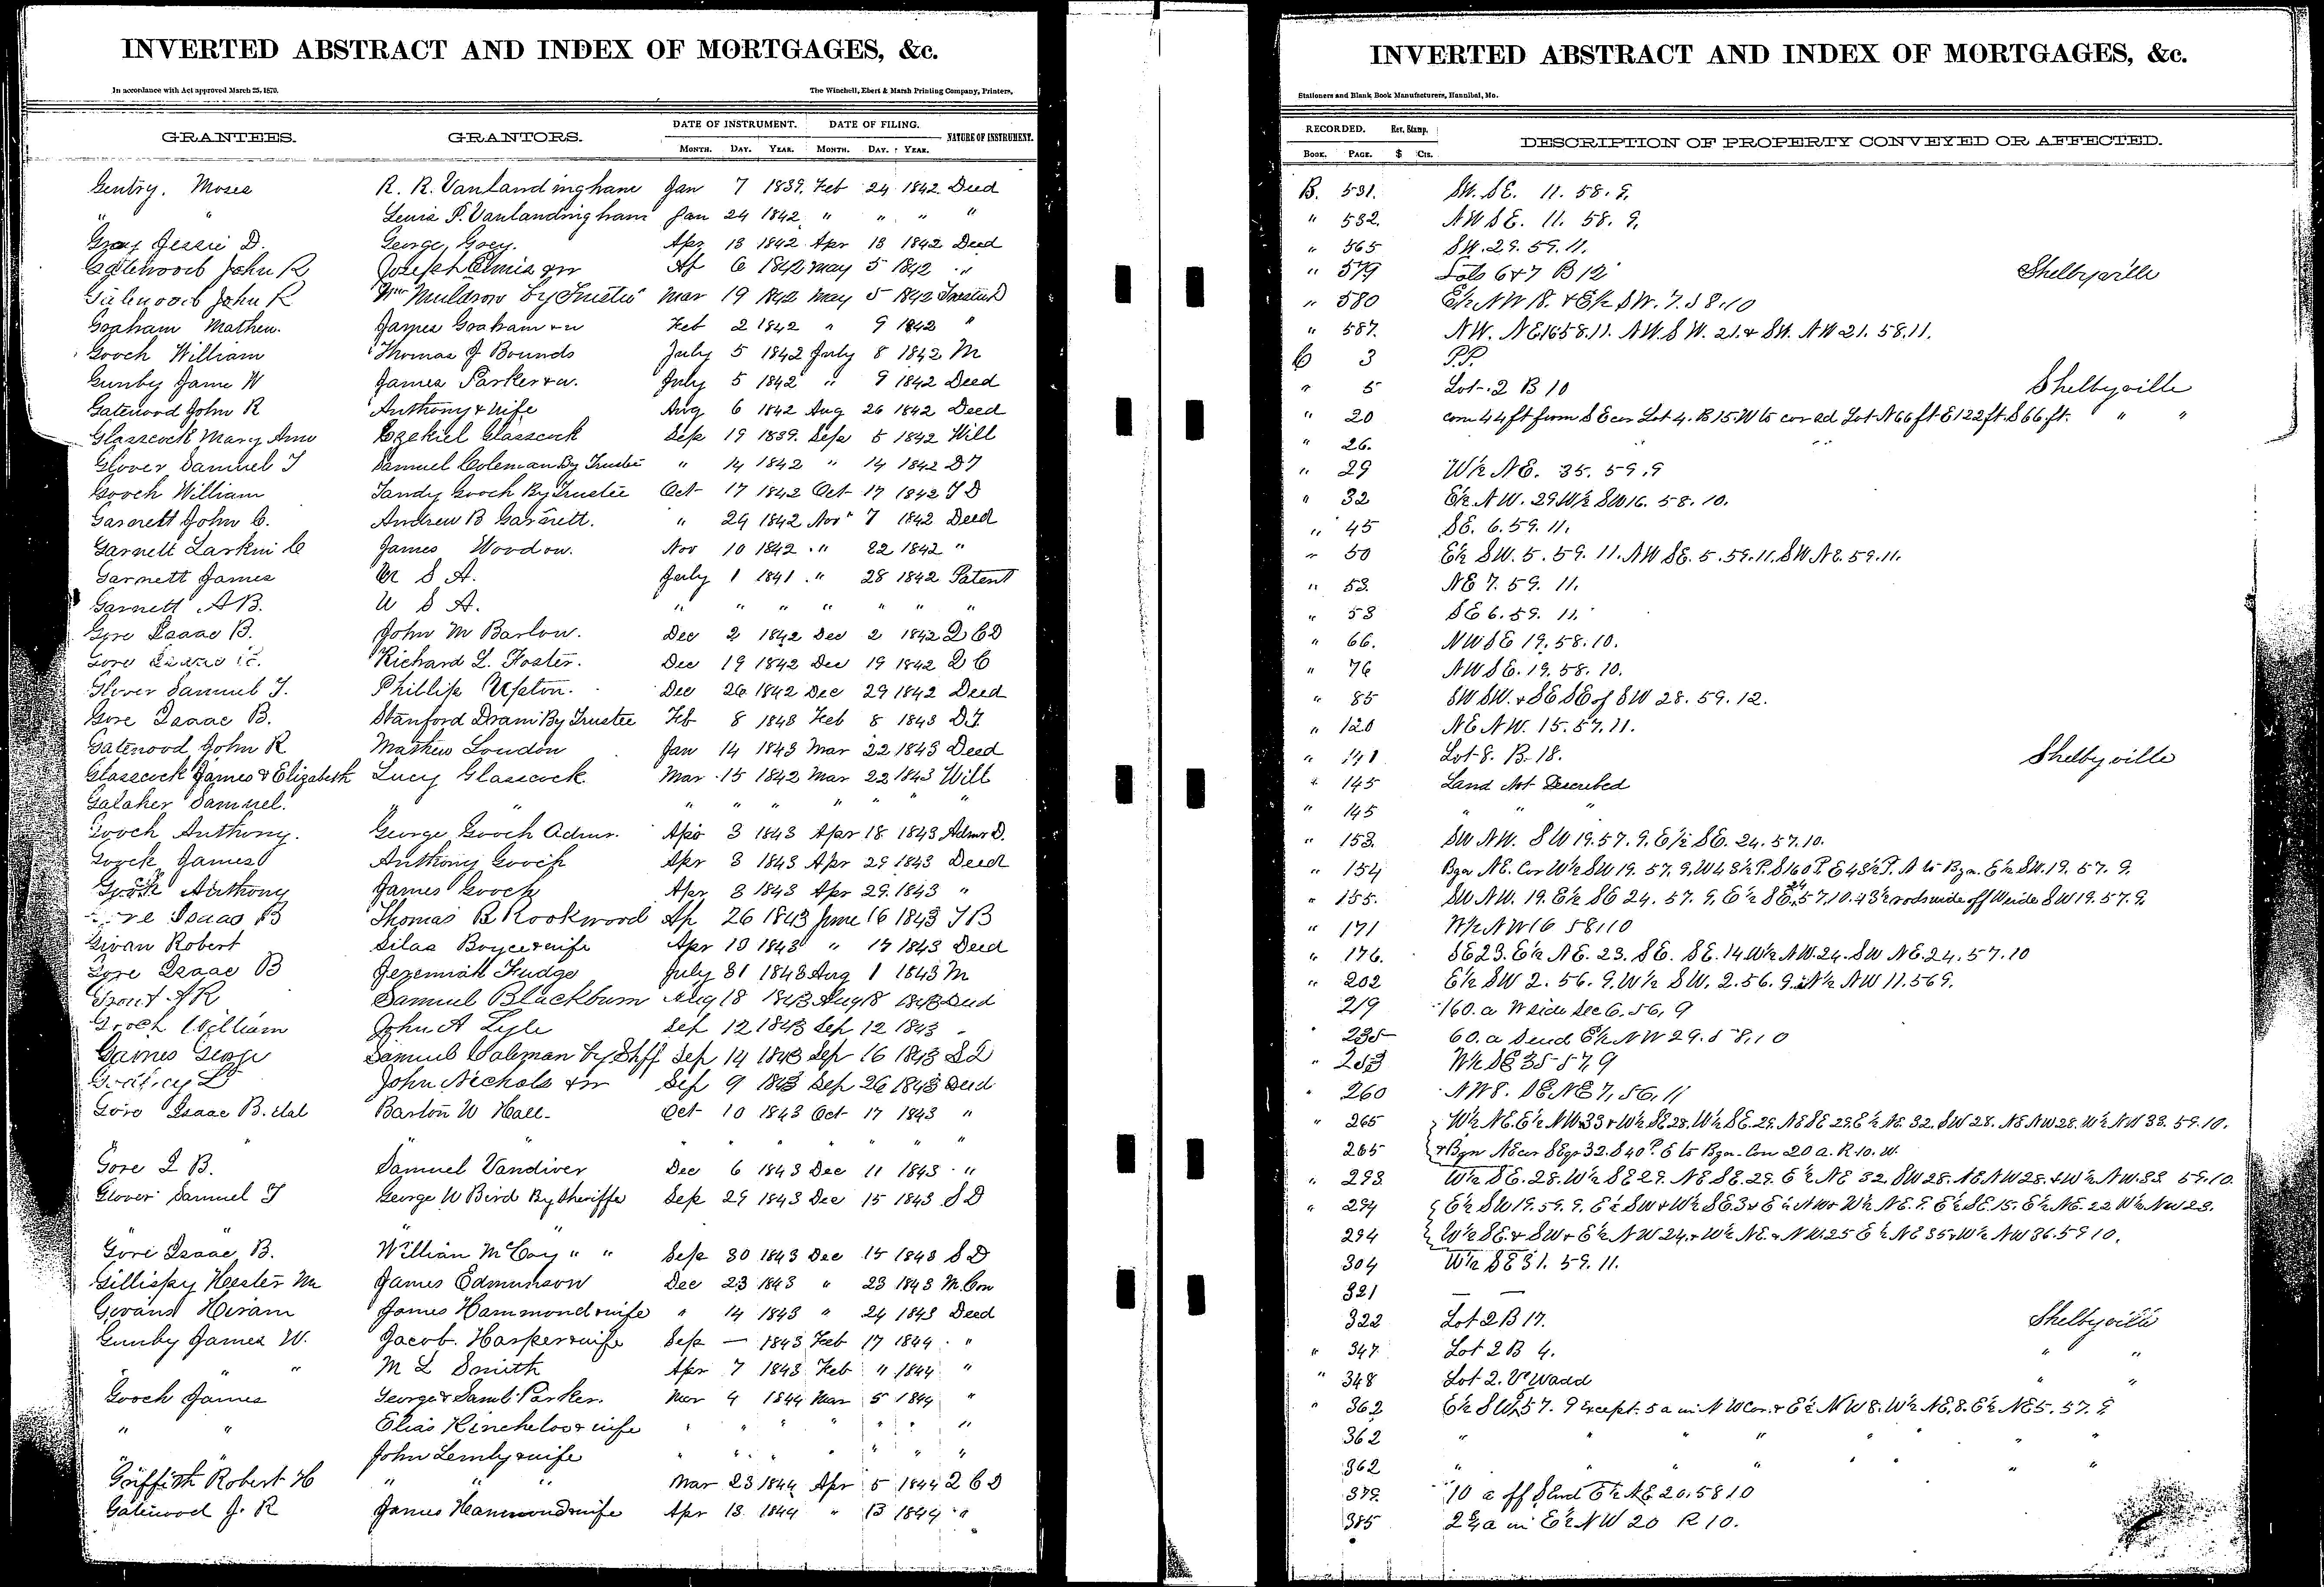 INVERTED ABSTRACT AND INDEX OF MORTGAGES, &c.
In accordance with Act approved March 25, 1870.
The Winchell, Ebert & Marsh Printing Company, Printers,
GRANTEES. GRANTORS. DATE OF INSTRUMENT. DATE OF FILING. NATURE OF INSTRUMENT.
MONTH. DAY. YEAR. MONTH. DAY. YEAR.
Gentry, Moses R. R. Vanlandingham Jan 7 1839. Feb 24 1842 Deed
" " Lewis P. Vanlandingham Jan 24 1842 " " " "
Gray Jessie D. George Grey. Apr 13 1842 Apr 13 1842 Deed
Gatewood John R Joseph Elmis & w Ap 6 1842 May 5 1842 "
Gatewood John R Wm Muldrow by Trustee Mar 19 1842 May 5 1842
Graham Mathew. James Graham & w Feb 2 1842 " 9 1842 "
Gooch William Thomas J Bounds July 5 1842 July 8 1842 M
Gunby Jame W James Parker & w. July 5 1842 " 9 1842 Deed
Gatewood John R Anthony & wife Aug 6 1842 Aug 26 1842 Deed
Glasscock Mary Ann Ezekiel Glasscock Sep 19 1839. Sep 5 1842 Will
Glover Samuel T Samuel Coleman By Trustee " 14 1842 " 14 1842 D T
Gooch William Tandy Gooch By Trustee Oct 17 1842 Oct 17 1842 T D
Garnett John C. Andrew B Garnett. " 29 1842 Nov 7 1842 Deed
Garnett Larkin C James Wood ow. Nov 10 1842 " 22 1842 "
Garnett James U S A. July 1 1841 " 28 1842 Patent
Garnett A B. U S A. " " " " " " "
Gore Isaac B. John M Barlow. Dec 2 1842 Dec 2 1842 Q C D
Gore Isaac Richard L. Foster. Dec 19 1842 Dec 19 1842 Q C
Glover Samuel T. Phillip Upton. Dec 26 1842 Dec 29 1842 Deed
Gore Isaac B. Stanford Drain By Trustee Feb 8 1843 Feb 8 1843 D T
Gatewood John R Mathew Loudon Jan 14 1843 Mar 22 1843 Deed
Glasscock James & Elizabeth Lucy Glasscock Mar 15 1842 Mar 22 1843 Will
Galaher Samuel. " " " " " " " " "
Gooch Anthony. George Gooch Admr. Apr 3 1843 Apr 18 1843 Admr D.
Gooch James Anthony Gooch Apr 3 1843 Apr 29 1843 Deed
Gooch Anthony James Gooch Apr 3 1843 Apr 29 1843 "
Gore Isaac B Thomas B Rookwood Ap 26 1843 June 16 1843 T B
Givan Robert Silas Boyce & wife Apr 10 1843 " 17 1843 Deed
Gore Isaac B Jeremiah Fudge July 31 1843 Aug 1 1843 M
A R Samuel Blackburn Aug 18 1843 Aug 18 1843 Deed
Gooch William John A Lyle Sep 12 1843 Sep 12 1843 "
Gaines George Samuel Coleman by Shff Sep 14 1843 Sep 16 1843 S D
John Nichols & w Sep 9 1843 Sep 26 1843 Deed
Gore Isaac B. et al Barton W Hall Oct 10 1843 Oct 17 1843 "
" " " " " " " "
Gore I B. Samuel Vandiver Dec 6 1843 Dec 11 1843 "
Glover Samuel T George W Bird By Sheriffe Sep 29 1843 Dec 15 1843 S D
Gore Isaac B. William McCoy " " Sep 30 1843 Dec 15 1843 S D
Gillispy Hester Mc James Edmunson Dec 23 1843 " 23 1843 M. Con
Givans Hiram James Hammond & wife " 14 1843 " 24 1843 Deed
Gunby James W. Jacob. Harper & wife Sep — 1843 Feb 17 1844 "
" " " M L Smith Apr 7 1843 Feb " 1844 "
Gooch James George & Saml Parker. Mar 4 1844 Mar 5 1844 "
" " Elias Kincheloe & wife " " " " " " "
" " John Lemly & wife " " " " " " "
Griffith Robert H " " " Mar 23 1844 Apr 5 1844 Q C D
Gatewood J. R James Hammond & wife Apr 13 1844 " 13 1844 "
INVERTED ABSTRACT AND INDEX OF MORTGAGES, &c.
Stationers and Blank Book Manufacturers, Hannibal, Mo.
RECORDED. Rev. Stamp. DESCRIPTION OF PROPERTY CONVEYED OR AFFECTED.
BOOK. PAGE. $ Cts.
B. 531. SW. SE. 11. 58. 9.
" 532. NW SE. 11. 58. 9.
" 565 SW. 29. 59. 11.
" 579 Lots 6 & 7 B 12 Shelbyville
" 580 E½ NW 18. & E½ SW. 7. 58. 10
" 587. NW. NE 16 58. 11. NW. SW. 21. & SW. NW 21. 58. 11.
C 3 P.P.
" 5 Lot 2 B 10 Shelbyville
" 20 com 44 ft from S E cor Lot 4. B 15. W to cor ad Lot N 66 ft E 122 ft. S 66 ft. " "
" 26. " "
" 29 W½ NE. 35. 59. 9
" 32 E½ NW. 29 W½ SW 16. 58. 10.
" 45 SE. 6. 59. 11.
" 50 E½ SW. 5. 59. 11. NW SE. 5. 59. 11. SW NE. 59. 11.
" 53. NE 7. 59. 11.
" 53 SE 6. 59. 11.
" 66. NW SE 19. 58. 10.
" 76 NW SE. 19. 58. 10.
" 85 SW SW. & SE SE of SW 28. 59. 12.
" 120 NE NW. 15. 57. 11.
" 141 Lot 8. B. 18. Shelbyville
" 145 Land Not Described
" 145 " " "
" 153. SW NW. SW 19. 57. 9. E½ SE. 24. 57. 10.
" 154 Bgn NE. Cor W½ SW 19. 57. 9. W 43½ P. S 160 P. E 43½ P. N to Bgn. E½ SW. 19. 57. 9.
" 155. SW NW. 19. E½ SE 24. 57. 9. E½ SE. 24 57. 10. 43½ rods wide off W side SW 19. 57. 9.
" 171 W½ NW 16 58 10
" 176. SE 23. E½ NE. 23. SE. SE. 14. W½ NW. 24. SW NE. 24. 57. 10
" 202 E½ SW 2. 56. 9. W½ SW. 2. 56. 9. N½ NW 11. 56 9.
219 160. a W side Sec 6. 56, 9
" 235 60. a S end E½ NW 29. 58, 10
" 253 W½ SE 35-57, 9
" 260 NW 8. SE NE 7, 56, 11
" 265 W½ NE. E½ NW 33 & W½ SE 28. W½ SE. 29. NE SE 29 E½ NE. 32. SW 28. NE NW 28. W½ NW 33. 59. 10.
265 & Bgn NE cor SE qr 32. S 40 P. E to Bgn. Con 20 a. R. 10. W.
" 293 W½ SE. 28. W½ SE 29. NE SE. 29. E½ NE 32. SW 28. NE NW 28. & W½ NW. 33 59. 10.
" 294 E½ SW 19. 59. 9. E½ SW & W½ SE. 3 & E½ NW & W½ NE. 9. E½ SE. 15. E½ NE. 22 W½ NW 23.
294 W½ SE. & SW & E½ NW 24. & W½ NE. & NW 25 E½ NE 35 & W½ NW 36. 59 10.
304 W½ SE 31. 59. 11.
321 — —
322 Lot 2 B 17. Shelbyville
" 347 Lot 2 B 4. " "
" 348 Lot 2. " "
" 362 E½ SW 57. 9 Except. 5 a in NW Cor. & E½ NW 8. W½ NE, 8. E½ NE 5. 57. 9
362 " " " " " " " "
362 " " " " " " " "
379. 10 a off S end E½ NE 20. 58 10
385 2¾ a in E½ NW 20 R 10.